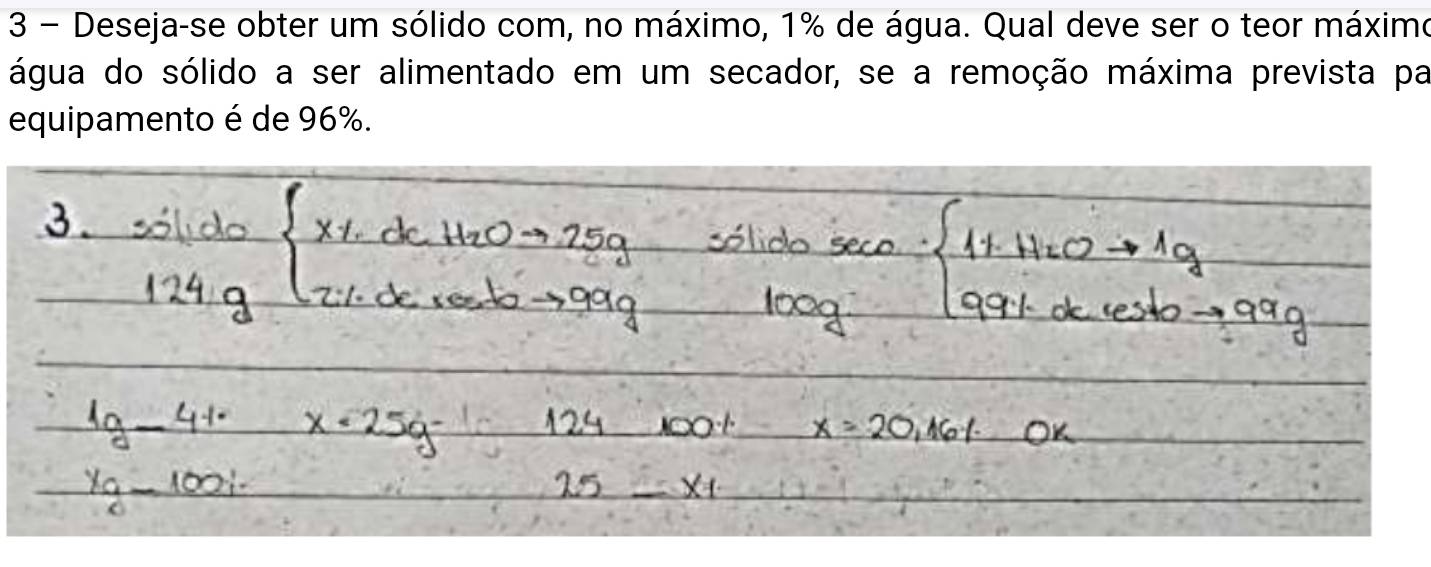 3 – Deseja-se obter um sólido com, no máximo, 1% de água. Qual deve ser o teor máximo
água do sólido a ser alimentado em um secador, se a remoção máxima prevista pa
equipamento é de 96%.
3. sólido { x% de H2O → 25g sólido seco { 1% H2O → 1g
124g z% de resto → 99g 100g 99% de resto → 99g
1g – 4% x = 25g 124 100% x = 20,16% OK
xg – 100% 25 – x%